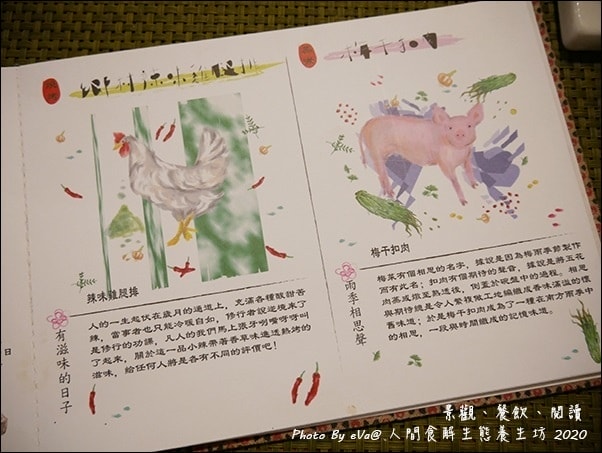 辣味雞腿排
有滋味的日子
人的一生起伏在歲月的通道上，充滿各種酸甜苦
辣，當事者也只能冷暖自如，修行者說逆境來了
是修行的功課，凡人的我們馬上張牙咧嘴呀呀叫
了起來，關於這一品小辣帶著香草味道透熱烤的
滋味，給任何人將是各有不同的評價吧！
梅干扣肉
雨季相思聲
梅菜有個相思的名字，據說是因為梅雨季節製作
而有此名；扣肉有個期待的聲音，據說是將五花
肉蒸或燉至熟透後，倒蓋於碗盤中的過程。相思
與期待總是令人繁複做工地編織成香味滿溢的懷
舊味道；於是梅干扣肉成為了一種在南方雨季中
的相思，一段與時間織成的記憶味道。
日
景觀、餐飲、閱讀
Photo By eVa@ 人間食解生態養生坊 2020